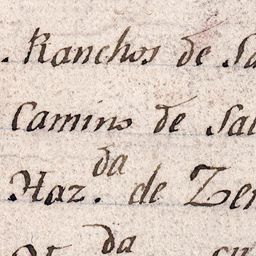 . Ranchos de Sa
Camino de Sal
Haz.da de Zer
da